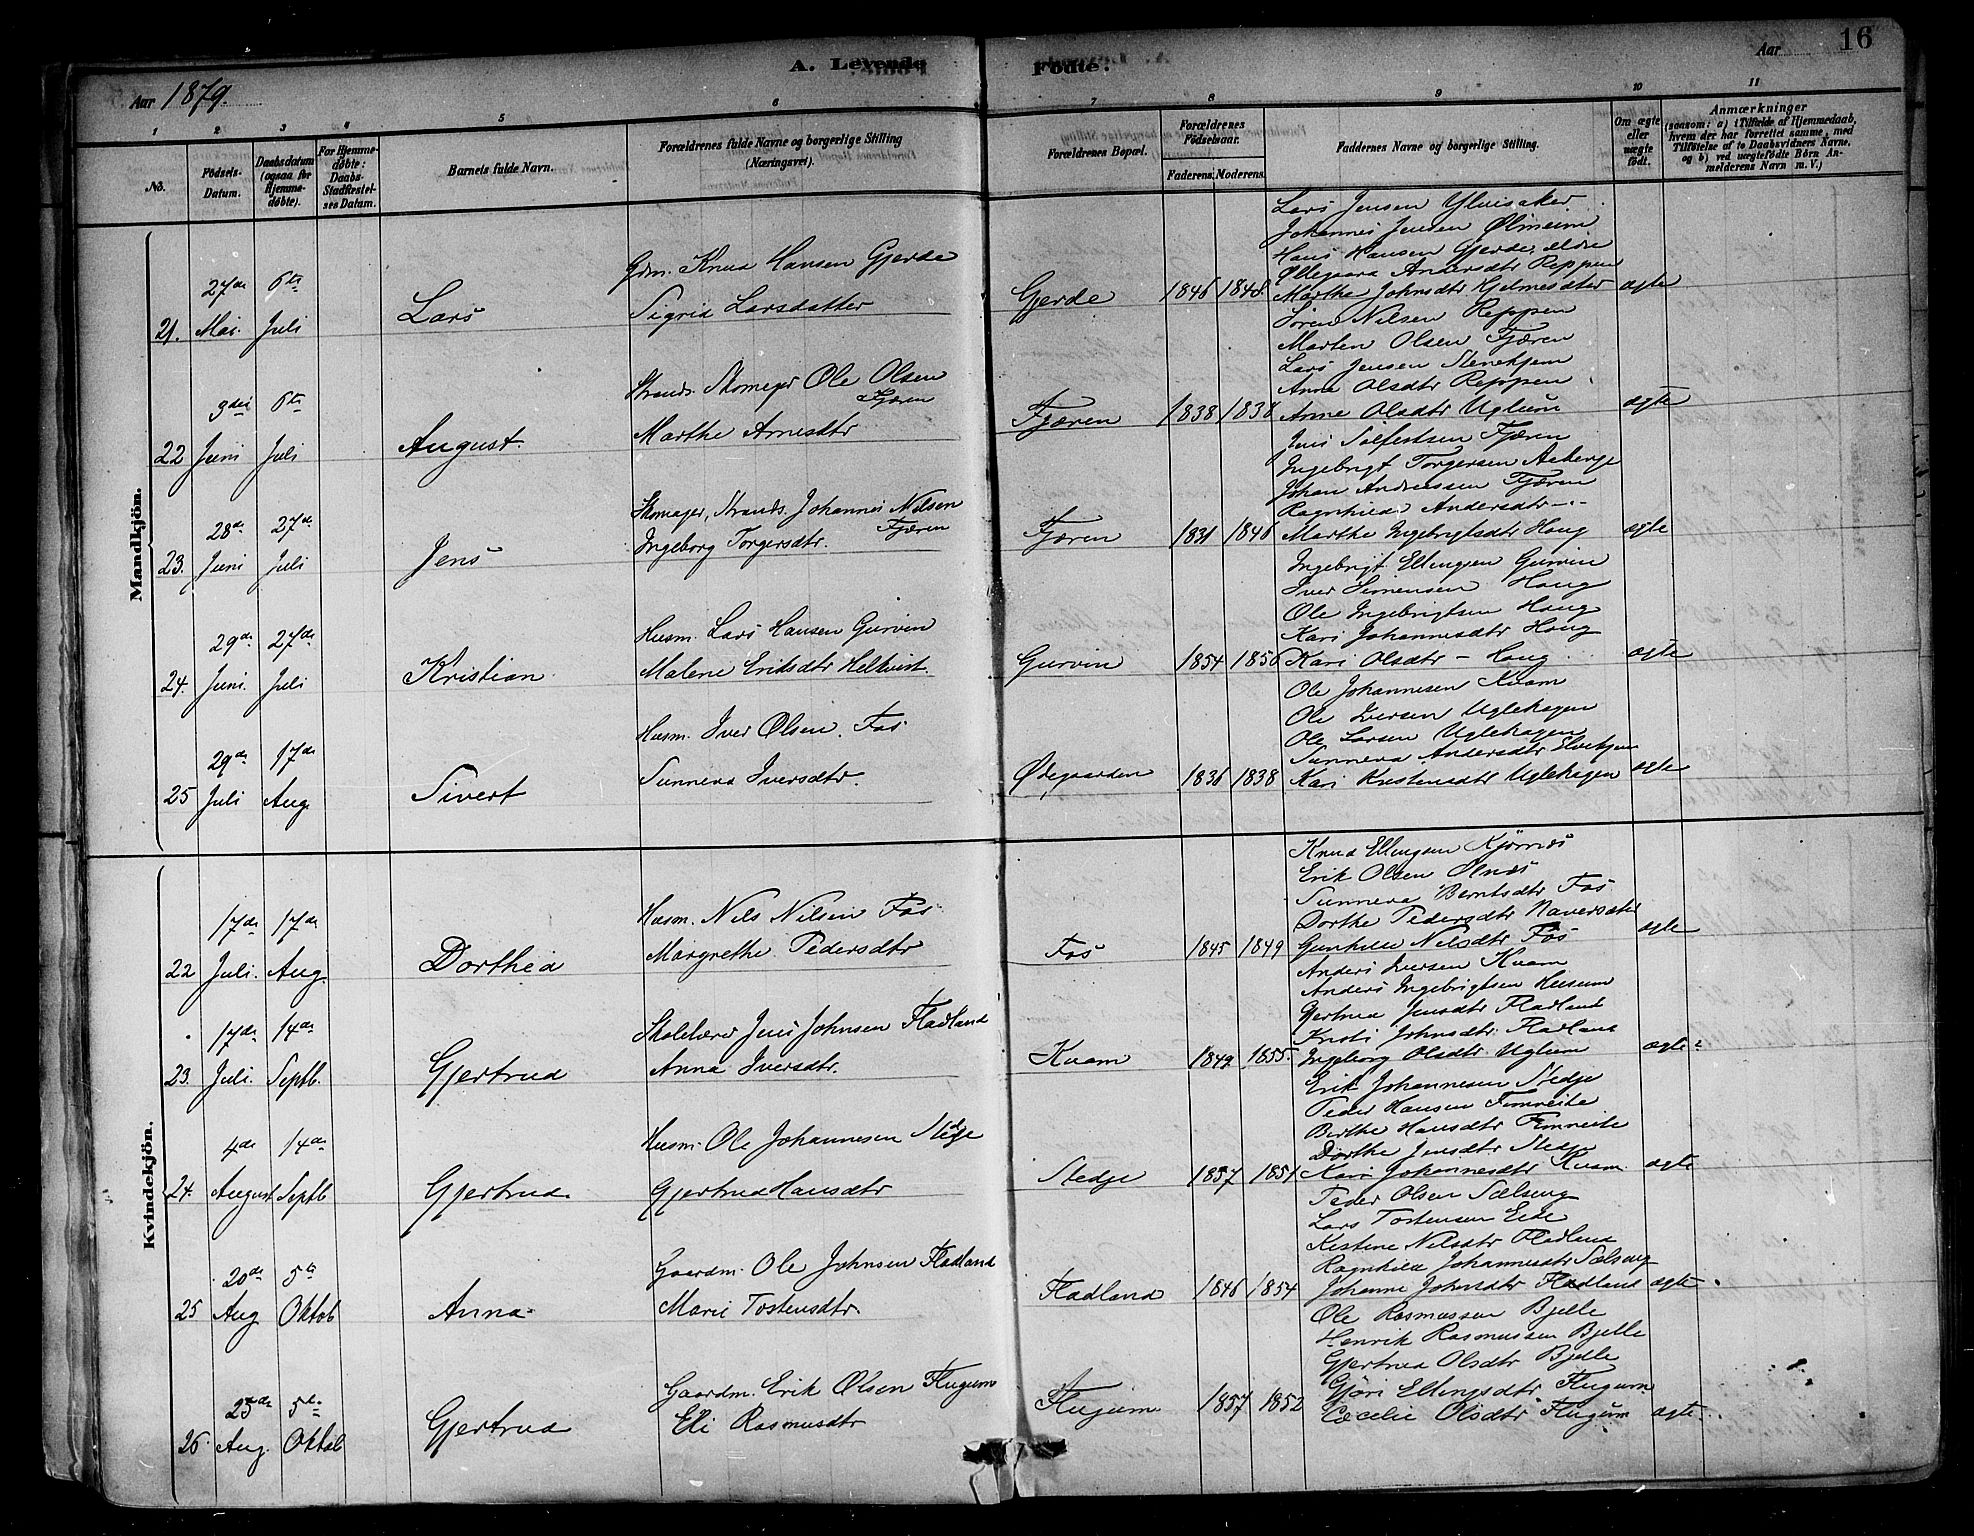 16
A. Levende Fødte.
Aar 1879.
Aar
1 2 3 4 5 6 7 8 9 10 11
No.
Fødsels-Datum.
Daabsdatum (ogsaa for Hjemmedøbte).
For Hjemmedøbte: Daabs-Stadfæstelses Datum.
Barnets fulde Navn.
Forældrenes fulde Navne og borgerlige Stilling (Næringsvei).
Forældrenes Bopæl.
Forældrenes Fødselsaar.
Faderens. Moderens.
Faddernes Navne og borgerlige Stilling.
Om ægte eller uægte født.
Anmærkninger
(saasom: a) i Tilfælde af Hjemmedaab, hvem der har forrettet samme, med Tilføielse af to Daabsvidners Navne, og b) ved uægtefødte Børn Anmelderens Navn m. V.)
Mandkjön.
21. 27de Mai. 6te Juli Lars
Gdm. Knud Hansen Gjerde
Sigrid Larsdatter
Gjerde 1846 1848.
Lars Jensen Ylvisaker
Johannes Jensen Ølmeim
Hans Hansen Gjerde, ældre
Øllegaard Andersdtr Reppen
Marthe Johnsdtr Hjelmesæter
ægte
22 3die Juni 6te Juli August.
Strands. Skomager Ole Olsen Fjæren
Marthe Arnesdtr
Fjæren 1838 1838
Søren Nilsen Reppen
Marten Olsen Fjæren
Lars Jensen Stenehjem
Anna Olsdtr Reppen
Anne Olsdtr Uglum
ægte
23. 28de Juni 27de Juli Jens
Skomager, Strands. Johannes Nilsen Fjæren
Ingeborg Torgersdtr.
Fjæren 1831 1846
Jens Solfestsen Fjæren
Ingebrigt Torgersen Aaberge
Johan Andreassen Fjæren
Ragnhild Andersdtr -"-
Marthe Ingebrigtsdtr Haug
ægte
24. 29de Juni. 27de Juli Kristian.
Husm. Lars Hansen Gurvin
Malene Eriksdtr
Gurvin 1854 1856
Ingebrigt Ellingsen Gurvin
Iver Simensen Haug
Ole Ingebrigtsen Haug
Kari Johannesdtr Haug
Kari Olsdtr - Haug
ægte
25 29de Juli 17de Aug. Sivert
Husm. Iver Olsen. Fos.
Sunneva Iversdtr.
Ødegaarden 1836 1838
Ole Johannesen Kvam
Ole Iversen Uglehagen
Ole Larsen Uglehagen
Sunneva Andersdtr Elvehjem
Kari Kristensdtr Uglehagen
ægte
Kvindekjön.
22 17de Juli. 17de Aug. Dorthea
Husm. Nils Nilsen Fos
Margrethe Pedersdtr
Fos 1845 1849
Knud Ellingsen Kjørnes
Erik Olsen Ølnes
Sunneva Berntsdtr Fos
Dorthe Pedersdtr Navarsæter
Gunhild Nilsdtr Fos
ægte
23. 17de Juli. 14de Septb. Gjertrud
Skolelærer Jens Johnsen Fladland
Anna Iversdtr.
Kvam 1849 1855.
Anders Iversen Kvam
Anders Ingebrigtsen Husum
Gjertrud Jensdtr Fladland
Kristi Johnsdtr. Fladland
Ingeborg Olsdtr Uglum
ægte
24. 4de August 14de Septb Gjertrud.
Husm. Ole Johannesen Stedje
Gjertrud Hansdtr
Stedje 1857 1851
Erik Johannesen Stedje
Peder Hansen Fimreite
Berthe Hansdtr Fimreite
Dorthe Jensdtr Stedje
Kari Johannesdtr Kvam
ægte
25 20de Aug 5te Oktob Anna
Gaardm. Ole Johnsen Fladland
Mari Tostensdtr.
Fladland 1846 1854
Peder Olsen Sælseng
Lars Tostensen Eide
Kristine Nilsdtr Fladland
Ragnhild Johannesdtr Sælseng
Johanne Johnsdtr Fladland
ægte
26. 25de Aug. 5te Oktob Gjertrud
Gaardm. Erik Olsen Flugum
Eli Rasmusdtr
Flugum 1857 1852
Ole Rasmussen Bjelle
Henrik Rasmussen Bjelle
Gjertrud Olsdtr Bjelle
Gjøri Ellingsdtr Flugum
Cecilie Olsdtr Flugum
ægte